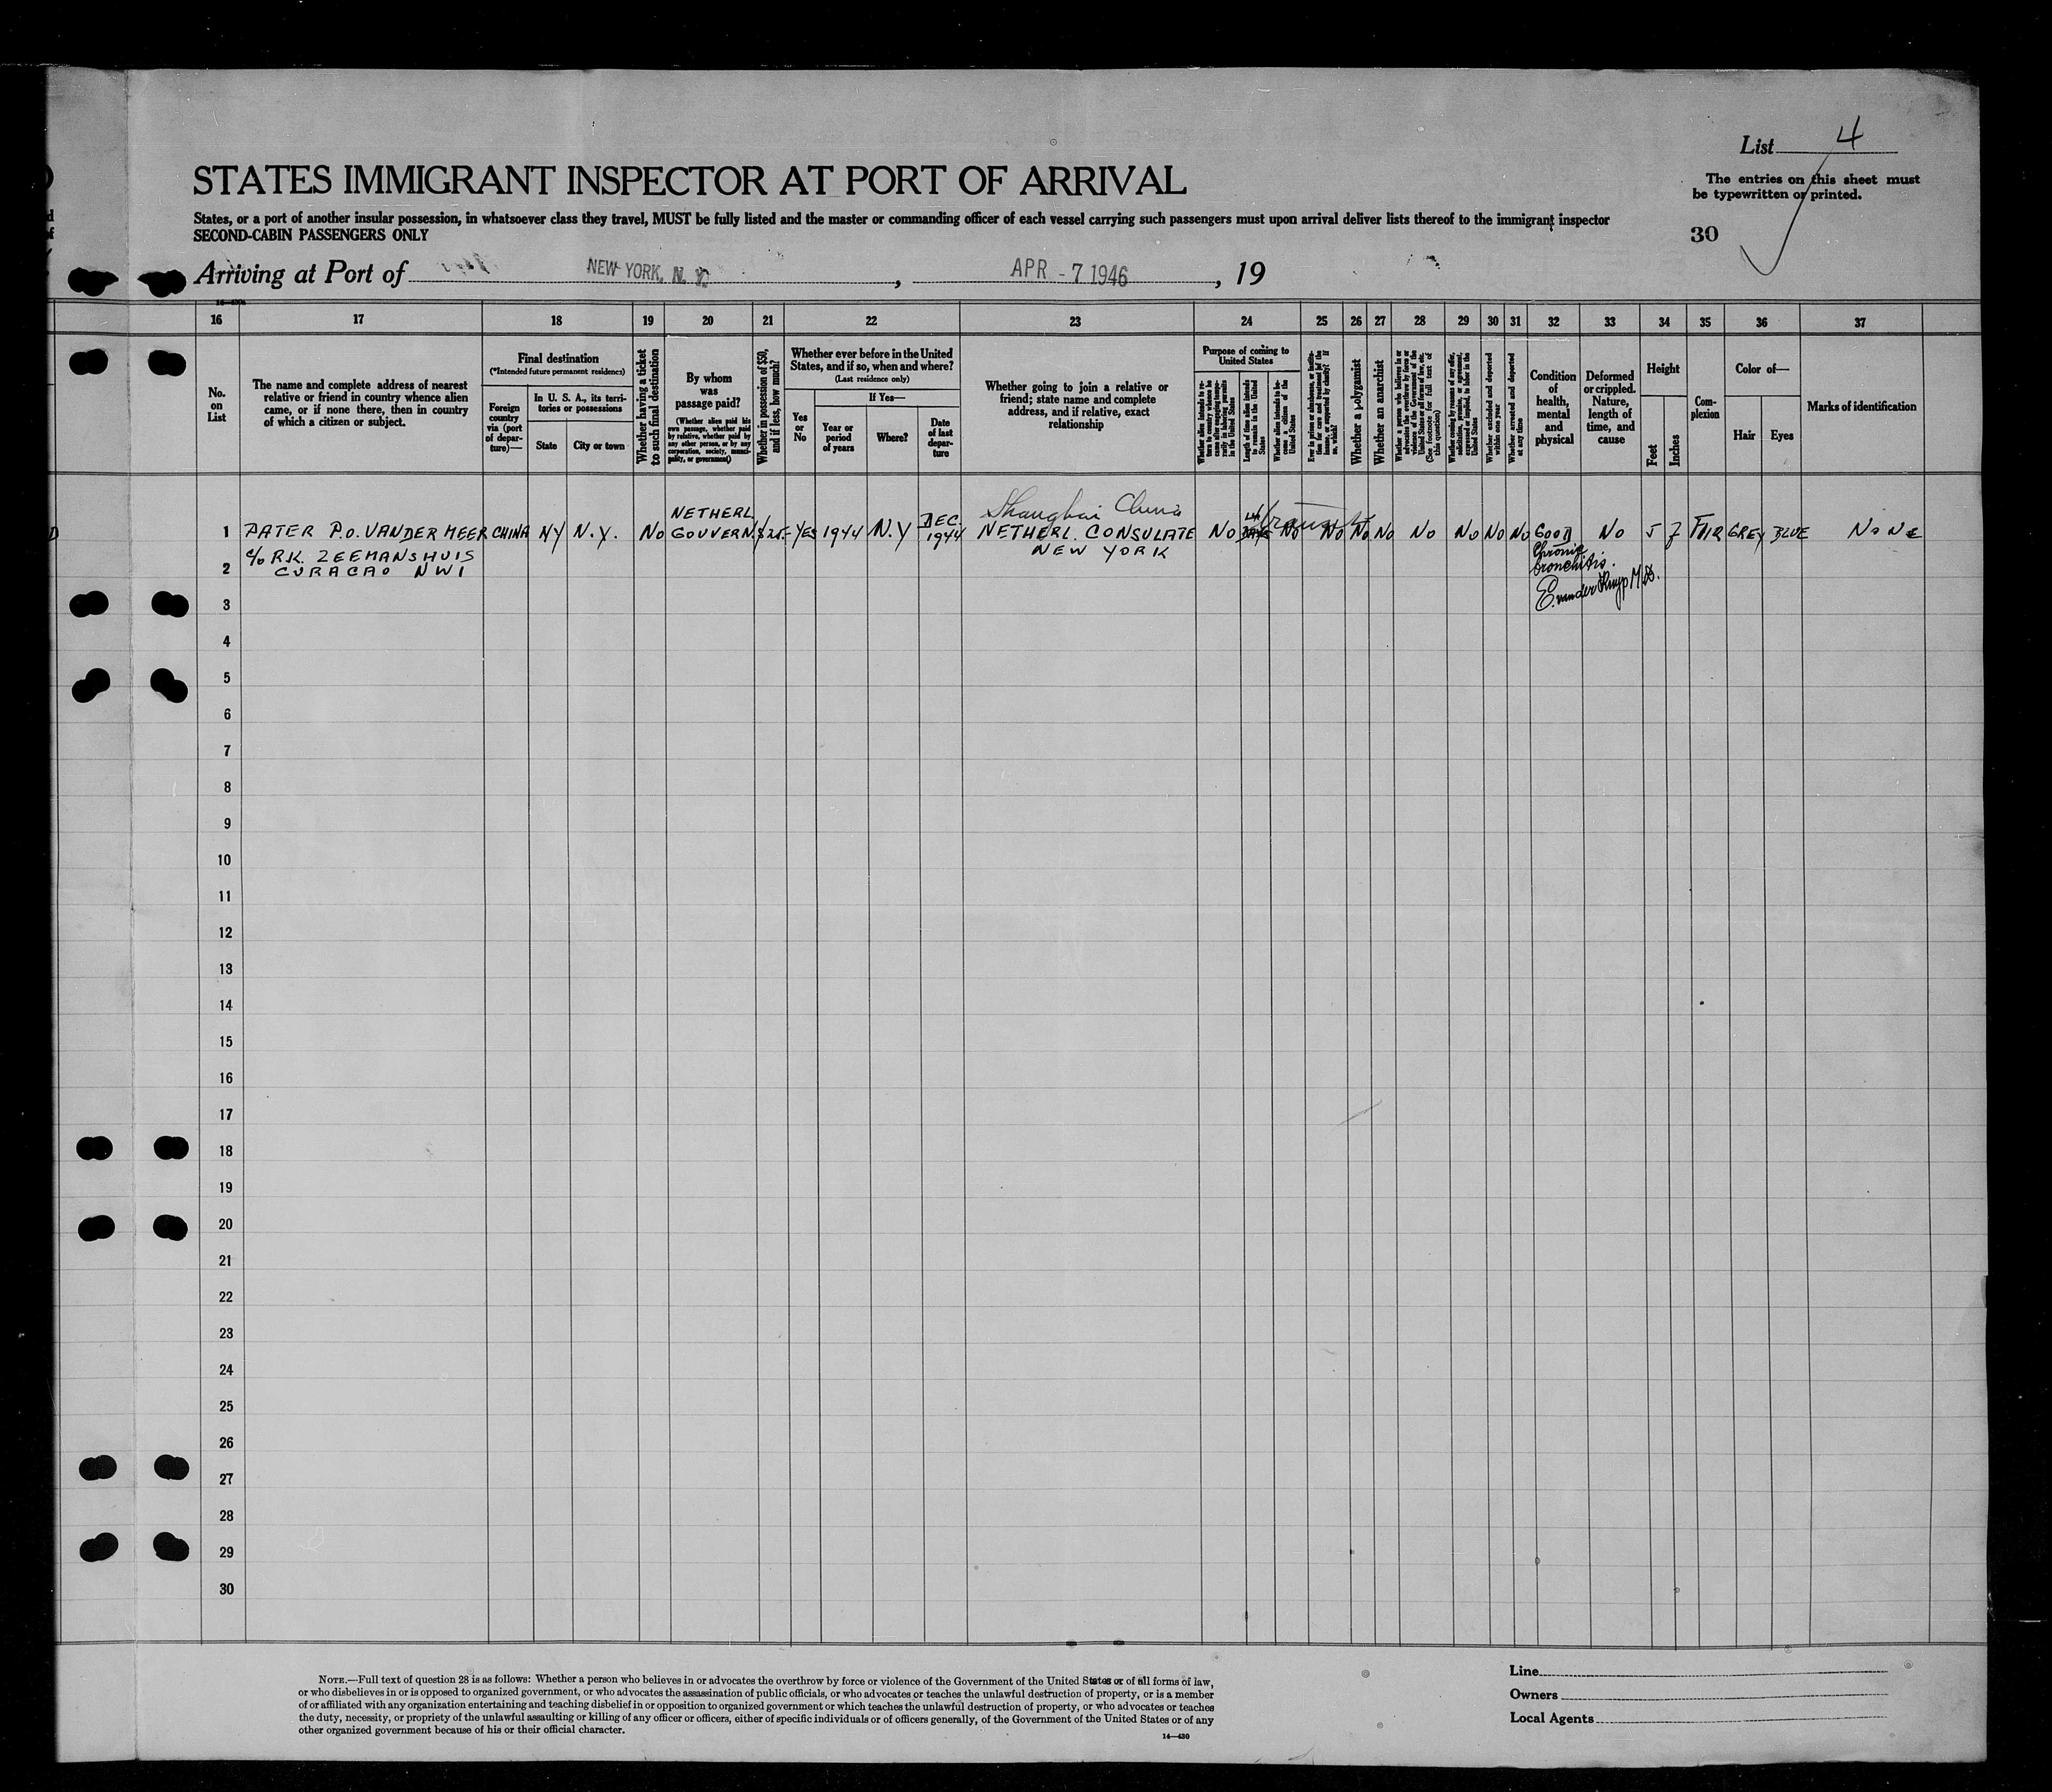 List 4
STATES IMMIGRANT INSPECTOR AT PORT OF ARRIVAL
The entries on this sheet must
be typewritten or printed.
States, or a port of another insular possession, in whatsoever class they travel, MUST be fully listed and the master or commanding officer of each vessel carrying such passengers must upon arrival deliver lists thereof to the immigrant inspector
SECOND-CABIN PASSENGERS ONLY
30
Arriving at Port of NEW YORK, N. Y. , APR - 7 1946 , 19
16 17 18 19 20 21 22 23 24 25 26 27 28 29 30 31 32 33 34 35 36 37
No.
on
List
The name and complete address of nearest
relative or friend in country whence alien
came, or if none there, then in country
of which a citizen or subject.
Final destination
(*Intended future permanent residence)
Foreign
country
via (port
of depar-
ture)—
In U. S. A., its terri-
tories or possessions
State
City or town
Whether having a ticket
to such final destination
By whom
was
passage paid?
(Whether alien paid his
own passage, whether paid
by relative, whether paid by
any other person, or by any
corporation, society, munici-
pality, or government)
Whether in possession of $50,
and if less, how much?
Whether ever before in the United
States, and if so, when and where?
(Last residence only)
Yes
or
No
If Yes—
Year or
period
of years
Where?
Date
of last
depar-
ture
Whether going to join a relative or
friend; state name and complete
address, and if relative, exact
relationship
Purpose of coming to
United States
Length of time alien intends
to remain in the United
States
Whether alien intends to be-
come a citizen of the
United States
Whether a polygamist
Whether an anarchist
(See footnote for full text of
this question)
Whether excluded and deported
within one year
Whether arrested and deported
at any time
Condition
of
health,
mental
and
physical
Deformed
or crippled.
Nature,
length of
time, and
cause
Height
Feet
Inches
Com-
plexion
Color of—
Hair
Eyes
Marks of identification
Shanghai China
1 PATER P.O. VAN DER MEER CHINA NY N.Y. NO NETHERL. GOUVERN. $25.- YES 1944 N.Y DEC. 1944 NETHERL. CONSULATE NO NO NO NO NO NO NO NO NO GOOD NO 5 7 FAIR GREY BLUE NONE
c/o R.K. ZEEMANSHUIS
NEW YORK
Chronic
bronchitis.
2 CURACAO NWI
M.D.
3
4
5
6
7
8
9
10
11
12
13
14
15
16
17
18
19
20
21
22
23
24
25
26
27
28
29
30
NOTE.—Full text of question 28 is as follows: Whether a person who believes in or advocates the overthrow by force or violence of the Government of the United States or of all forms of law,
or who disbelieves in or is opposed to organized government, or who advocates the assassination of public officials, or who advocates or teaches the unlawful destruction of property, or is a member
of or affiliated with any organization entertaining and teaching disbelief in or opposition to organized government or which teaches the unlawful destruction of property, or who advocates or teaches
the duty, necessity, or propriety of the unlawful assaulting or killing of any officer or officers, either of specific individuals or of officers generally, of the Government of the United States or of any
other organized government because of his or their official character.
14—430
Line
Owners
Local Agents